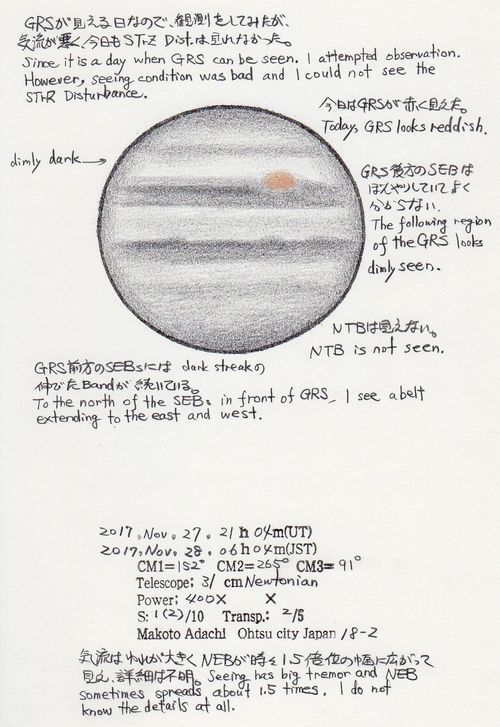 GRSが見える日なので、観測をしてみたが、
気流が悪く、今日もSTrZ Dist.は見れなかった。
Since it is a day when GRS can be seen. I attempted observation.
However, seeing condition was bad and I could not see the
STrZ Disturbance.
今日はGRSが赤く見えた。
Today, GRS looks reddish.
dimly dark→
GRS後方のSEBは
ぼんやりしていてよく
分からない。
The following region
of the GRS looks
dimly seen.
NTBは見えない。
NTB is not seen.
GRS前方のSEBsには dark streakの
伸びたBandが続いている。
To the north of the SEBs in front of GRS, I see a belt
extending to the east and west.
2017, Nov. 27. 21h 04m(UT)
2017, Nov. 28. 06h04m(JST)
CM1=152° CM2=265° CM3=91°
Telescope: 31 cm Newtonian
Power: 400X X
S: 1(2)/10 Transp.: 2/5
Makoto Adachi Ohtsu city Japan 18-2
気流はゆれが大きくNEBが時々1.5倍位の幅に広がって
見え、詳細は不明。Seeing has big tremor and NEB
sometimes spreads about 1.5 times. I do not
know the details at all.